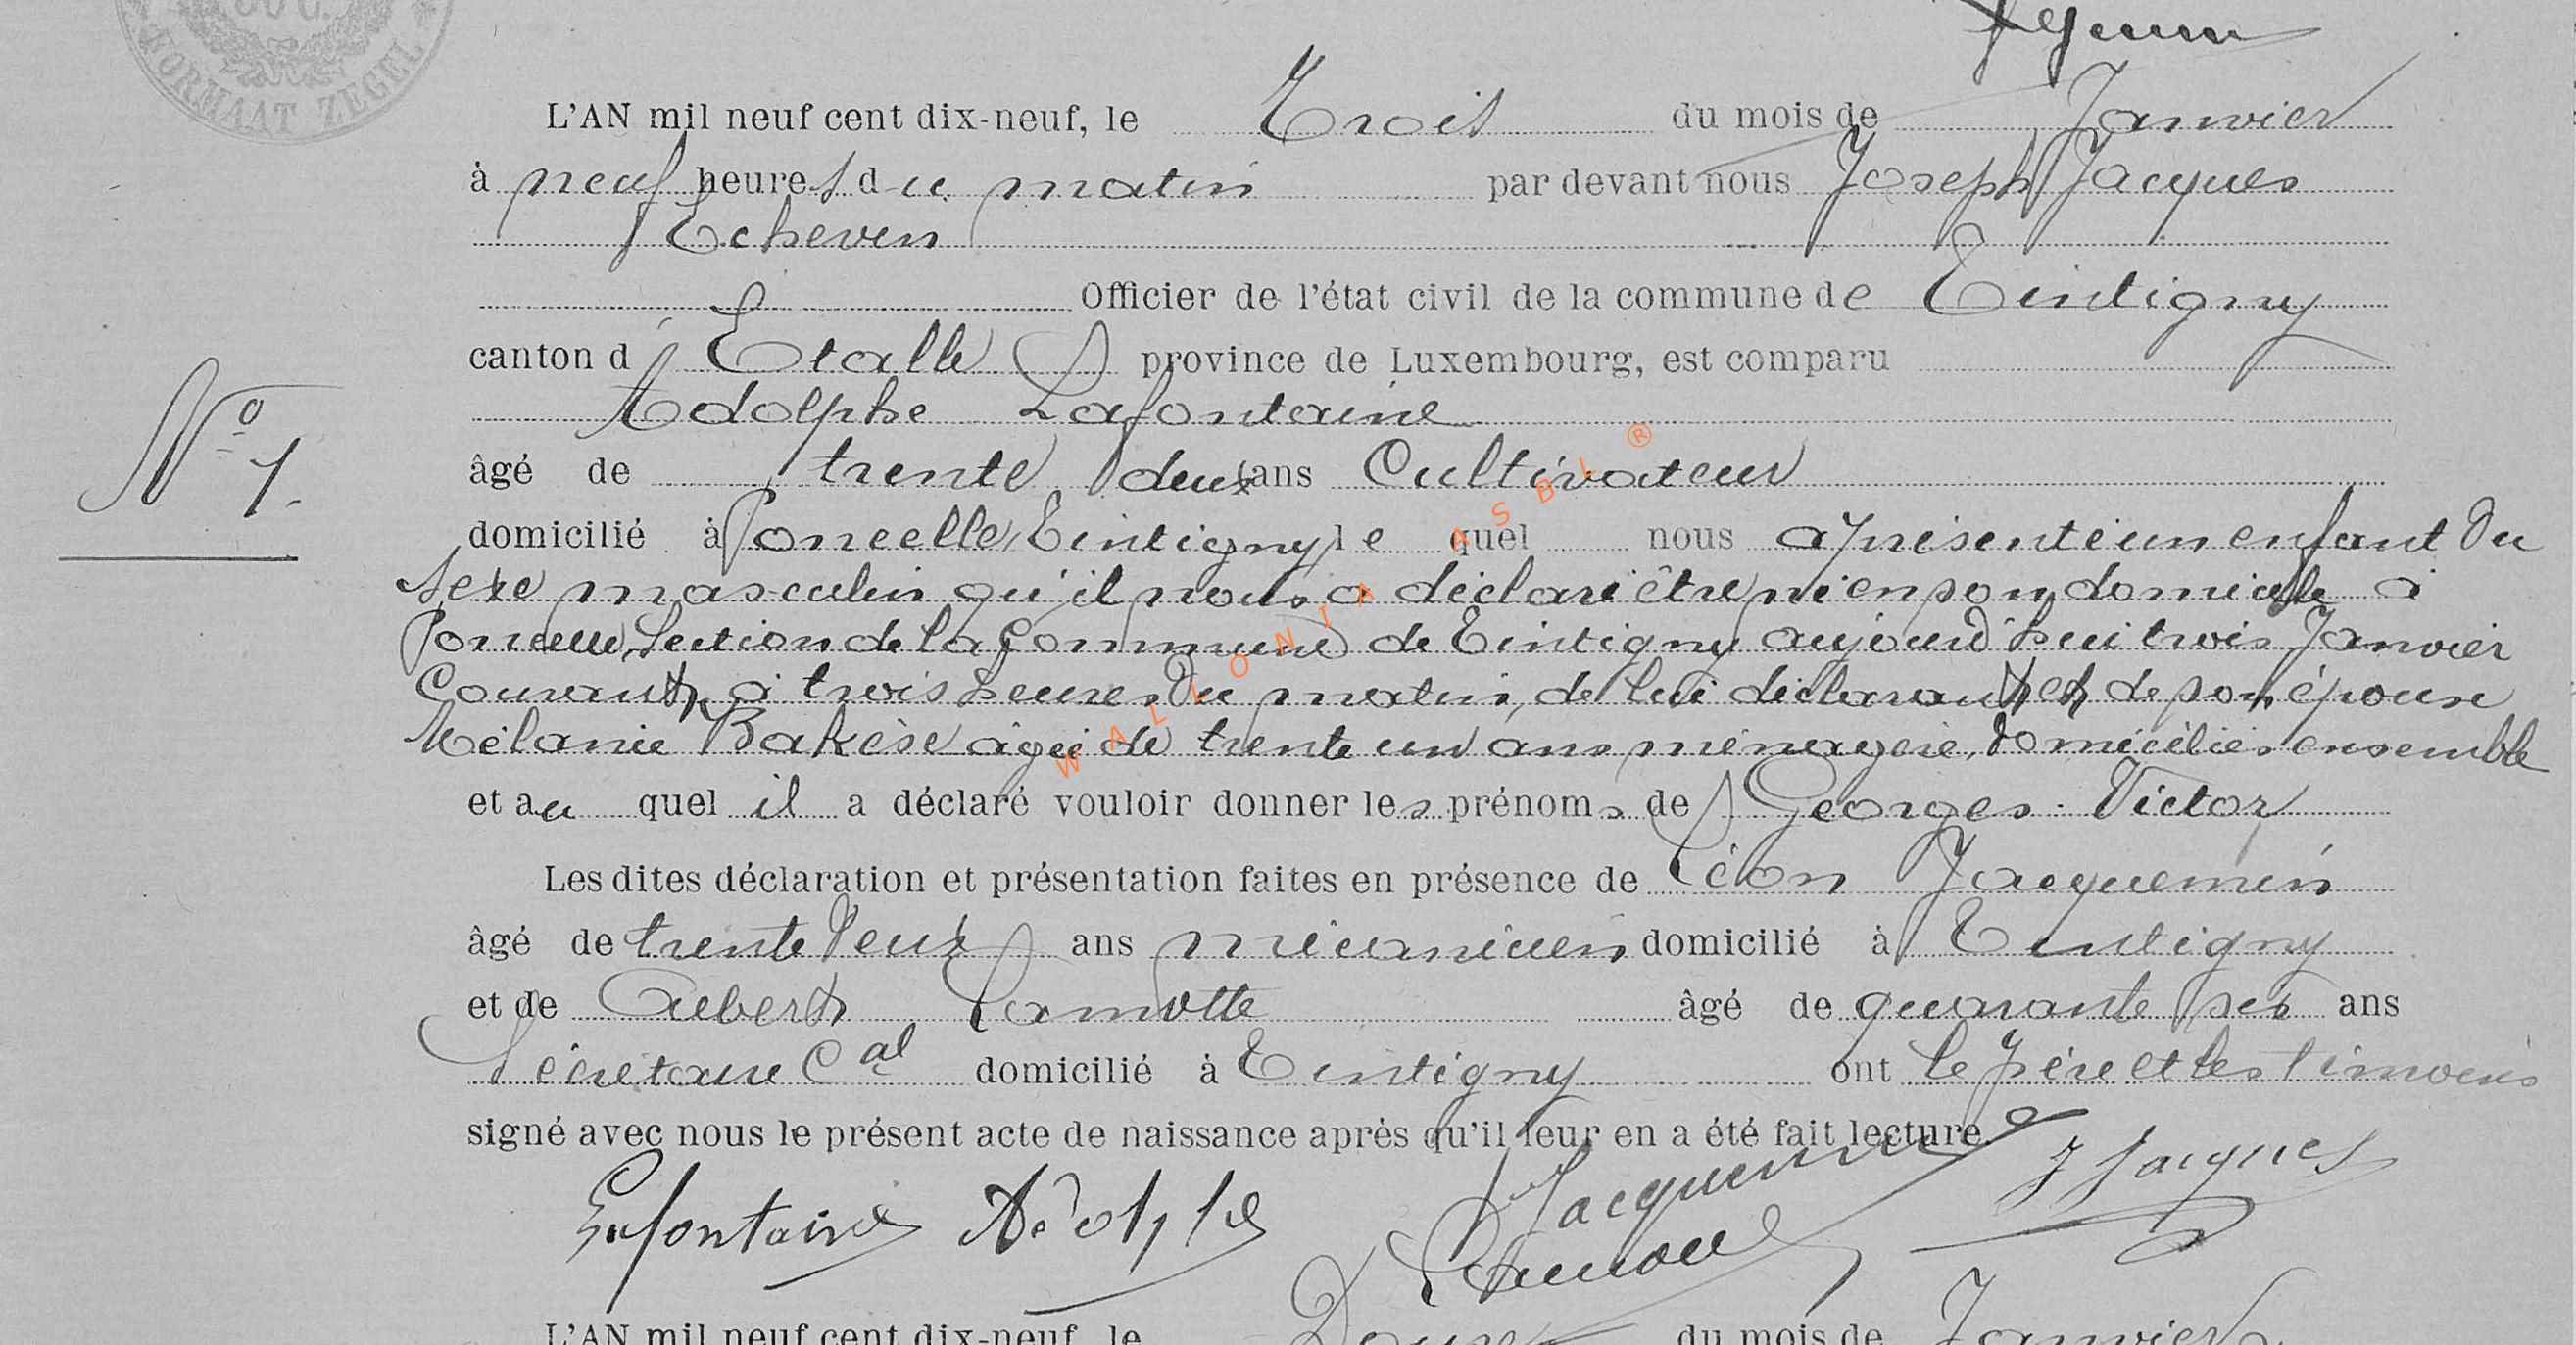 FORMAAT ZEGEL
L'AN mil neuf cent dix-neuf, le Trois du mois de Janvier
à neuf heures du matin par devant nous Joseph Jacques
Echevin
Officier de l'état civil de la commune de Tintigny
canton d'Etalle province de Luxembourg, est comparu
Adolphe Lafontaine
N° 1.
âgé de trente deux ans Cultivateur
domicilié à Poncelle, Tintigny le quel nous a présenté un enfant du
sexe masculin qu'il nous a déclaré être né en son domicile à
Poncelle, Section de la Commune de Tintigny aujourd'hui trois Janvier
Courant, à trois heures du matin, de lui déclarant et de son épouse
Mélanie Bakèse âgée de trente un ans ménagère, domiciliés ensemble
et au quel il a déclaré vouloir donner les prénoms de Georges Victor
Les dites déclaration et présentation faites en présence de Léon Jacquemin
âgé de trente deux ans mécanicien domicilié à Tintigny
et de Albert Lamotte âgé de quarante six ans
Secrétaire Cal domicilié à Tintigny ont le père et les témoins
signé avec nous le présent acte de naissance après qu'il leur en a été fait lecture.
Lafontaine Adolphe Jacquemin J Jacques
Lamotte
L'AN mil neuf cent dix-neuf, le du mois de Janvier
WALLONIA ASBL ®